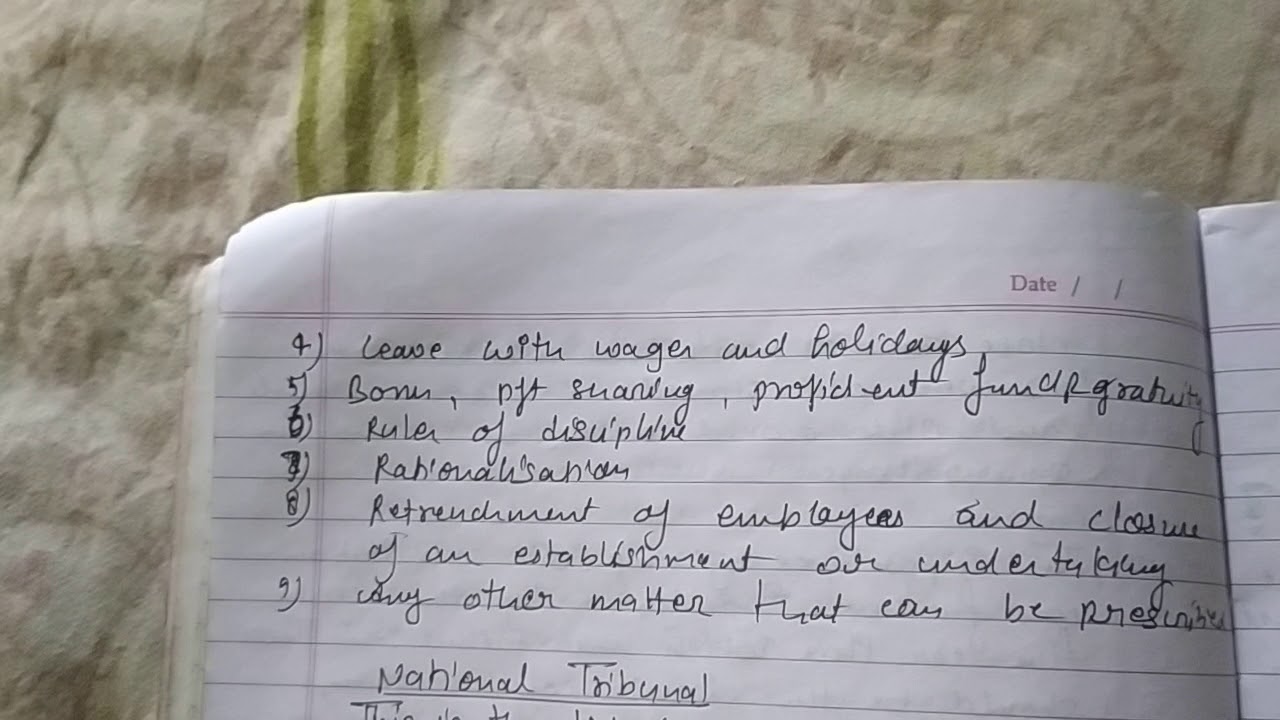 Date / /
4) Leave with wages and holidays,
5) Bonus, pft sharing, profident fund & gratuity
6) Rules of discipline
7) Rationalisation
8) Retrenchment of employees and closure
of an establishment or undertaking
9) Any other matter that can be prescribed
National Tribunal
This is the